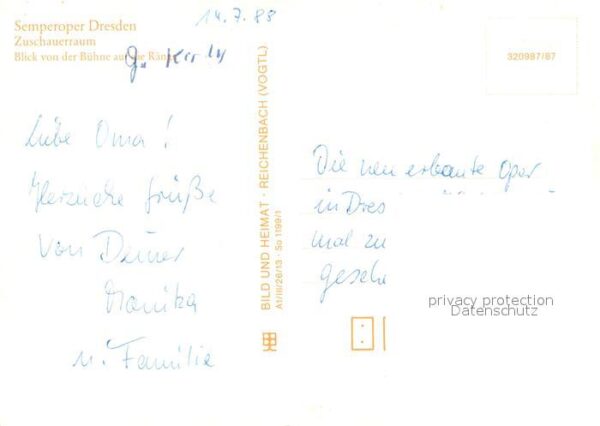 14.7.88
Semperoper Dresden
Zuschauerraum
Blick von der Bühne auf die Ränge
G.
Liebe Oma!
Herzliche Grüße
von Deiner
Monika
u. Familie
BILD UND HEIMAT · REICHENBACH (VOGTL)
A1/III/26/13 · So 1199/1
320987/87
Die neu erbaute Oper
in Dres
mal zu
gesehe
privacy protection
Datenschutz